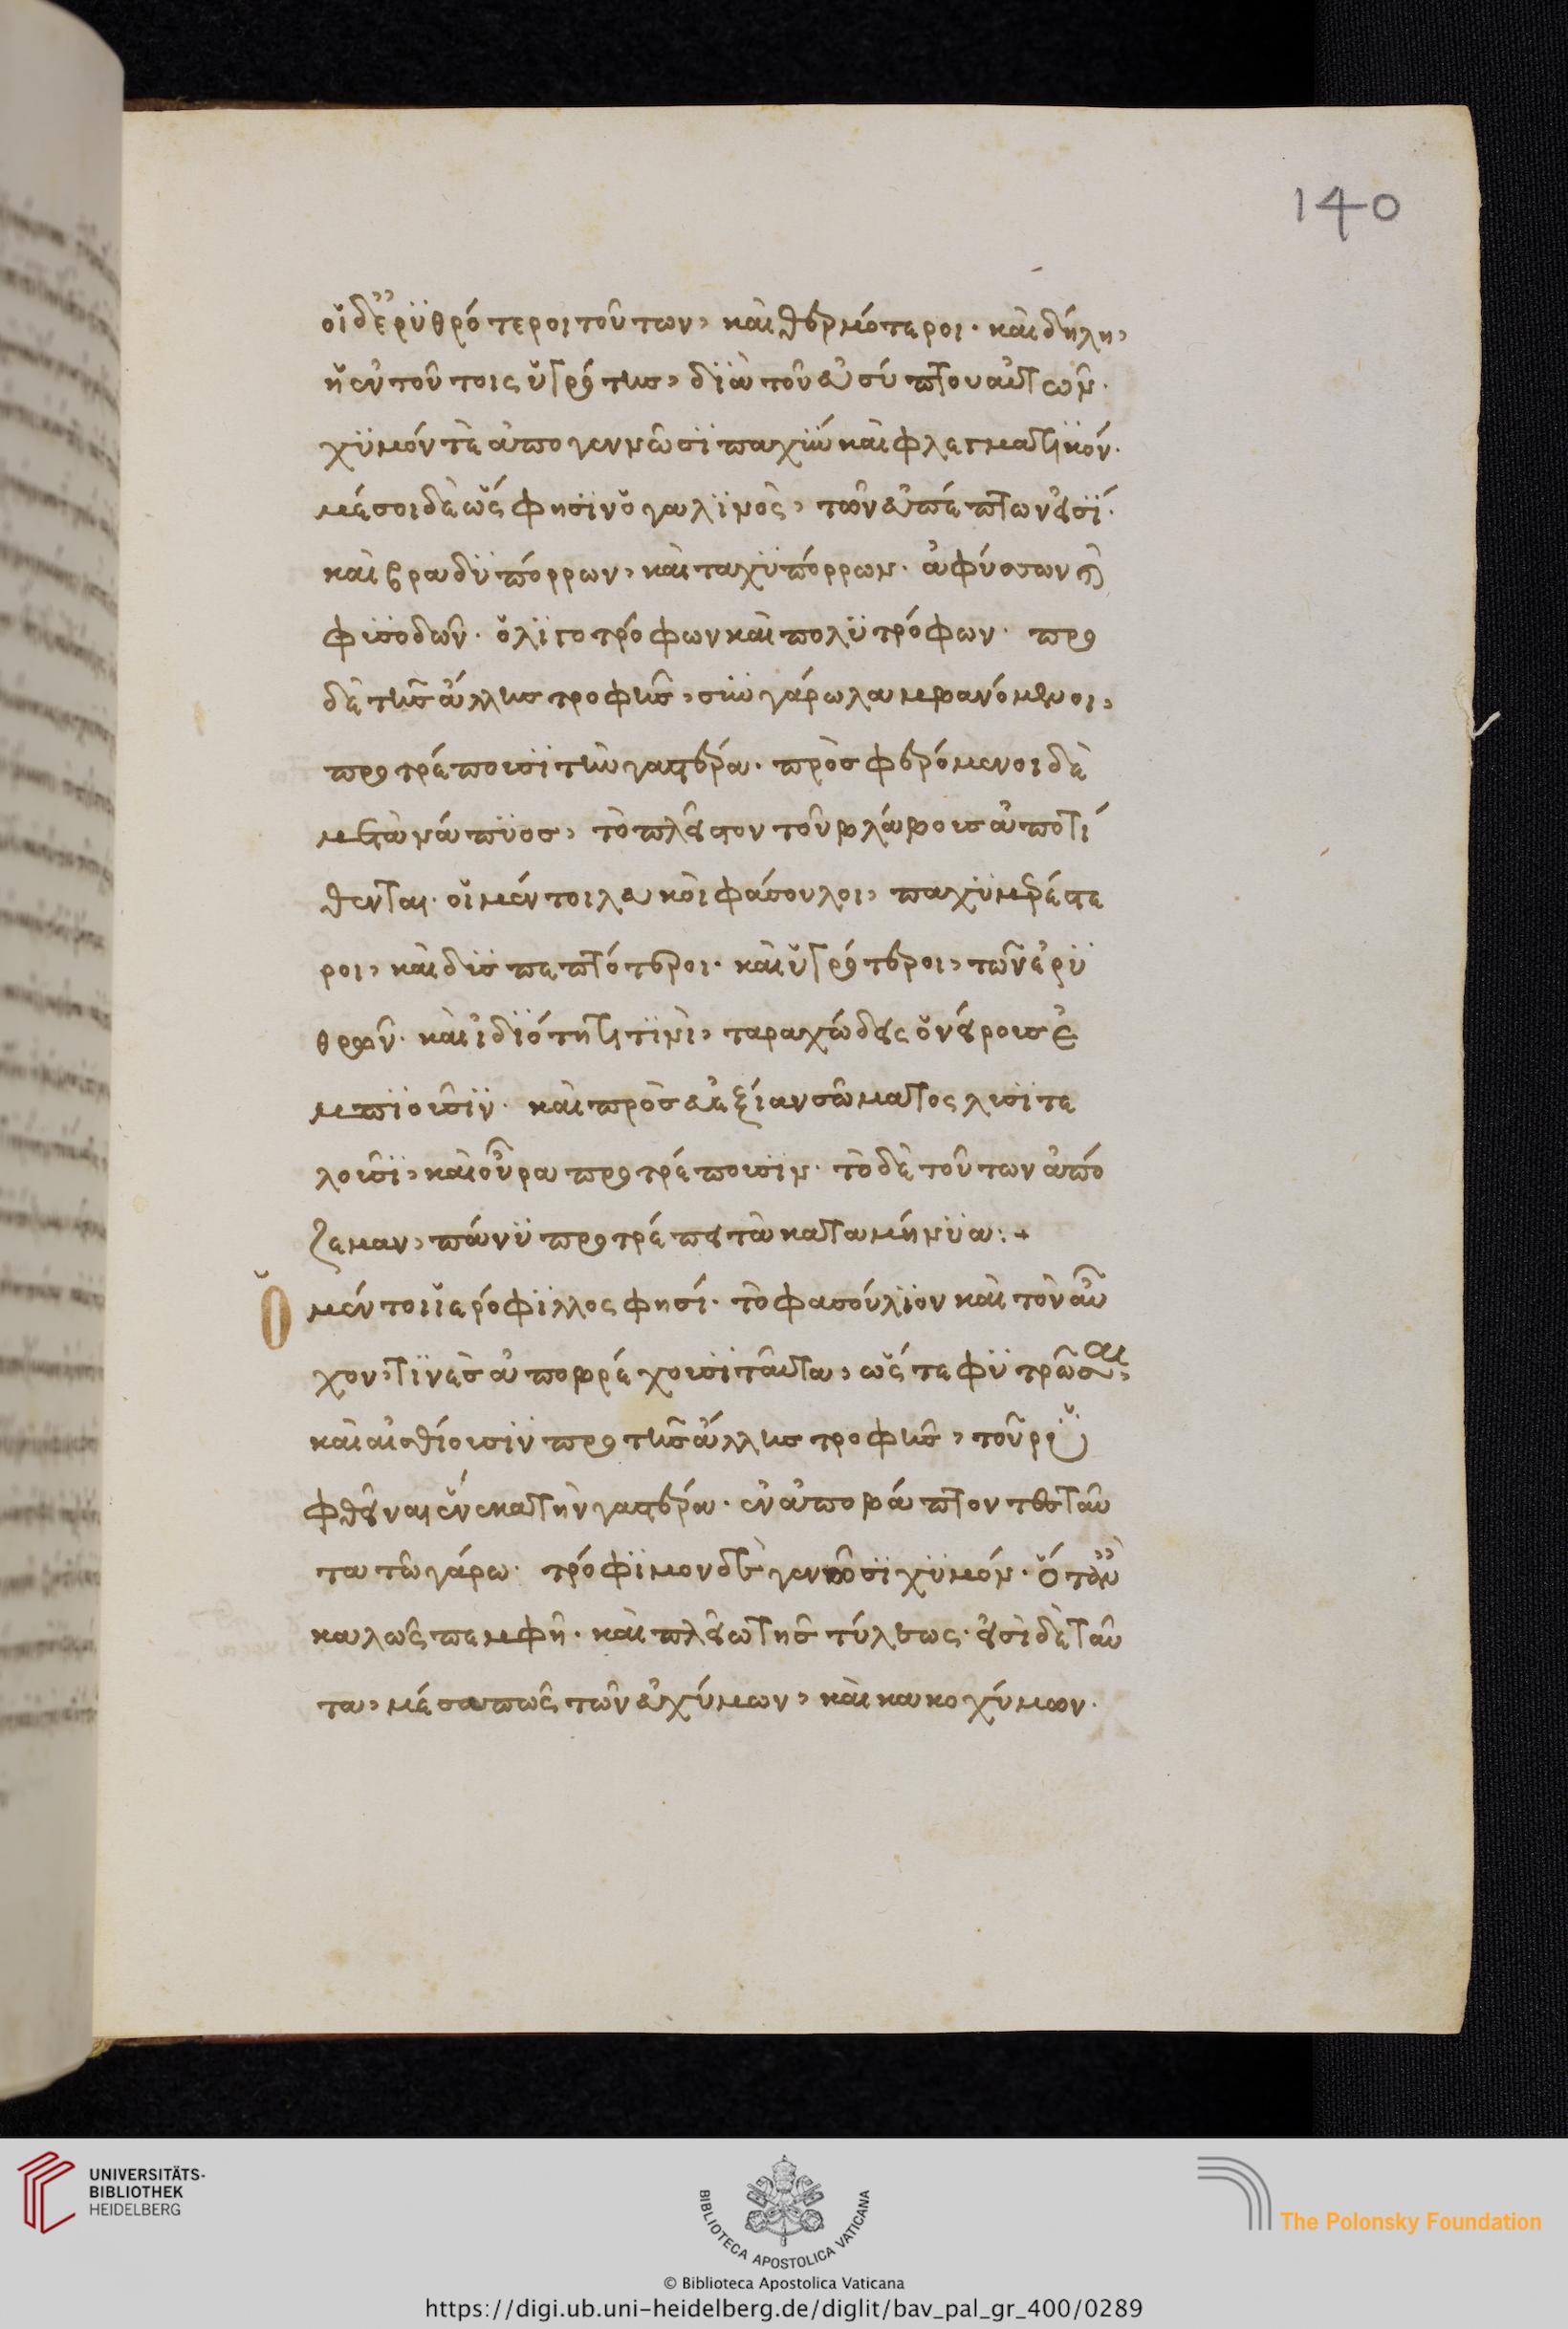 140
οἵ δε ἐρϋθρότεροι τούτων, καὶ θερμότεροι. καὶ δήλη,
ἡ ἐν τούτοις ὑγρότης, διὰ τοῦ εὐσύπτου αὐτῶν.
χϋμόν τὲ ἀπογεννῶσϊ παχὺν καὶ φλεγματϊκόν.
μέσοι δὲ ὥς φησϊν ὁ γαλϊνὸς, τῶν εὐπέπτων εἰσϊ.
καὶ βραδϋπόρρων, καὶ ταχϋπόρρων. ἀφύσσων καὶ
φϋσοδῶν. ὀλϊγοτρόφων καὶ πολϋτρόφων. προ
δὲ τῆς ἄλλης τροφῆς, σὺν γάρω λαμβανόμενοι,
προτρέπουσϊ τὴν γαστέρα. πρὸσφερόμενοι δὲ
μετὰ νάπϋος, τὸ πλεῖστον τοῦ βλάβους ἀποτί
θενται. οἵ μέντοι λευκοὶ φάσουλοι, παχϋμερέστε
ροι, καὶ δϋσπεπτότεροι. καὶ ὑγρότεροι, τῶν ἐρϋ
θρῶν. καὶ ἰδϊότητϊ τϊνὶ, ταραχώδεις ὀνείρους ἐ
μπϊοῦσϊν. καὶ πρὸς εὐεξίαν σώματος λυσϊτε
λοῦσϊ, καὶ οὖρα προτρέπουσϊν. τὸ δὲ τούτων ἀπό
ζεμαν, πάνϋ προτρέπει τὰ καταμήνϋα:+
Ὁ μέντοι ἱερόφϊλλος φησί. τὸ φασούλϊον καὶ τὸν αὖ
χον, τϊνὲς ἀποβρέχουσϊ ταῦτα, ὥς τε φϋτρῶσαι,
καὶ αἰσθίουσϊν προ τῆς ἄλλης τροφῆς, τοῦ ρϋ
φθεῖναι ἕνεκα τὴν γαστέρα. ἐναποβάπτοντες ταῦ
τα τῶ γάρω. τρόφϊμον δὲ γεννῶσϊ χϋμόν. ὅταν
καλῶς πεμφῆ. καὶ πλείω τῆς τύλεως. εἰσὶ δὲ ταῦ
τα, μέσα πῶς τῶν εὐχύμων, καὶ κακοχύμων.
UNIVERSITÄTS-
BIBLIOTHEK
HEIDELBERG
BIBLIOTECA APOSTOLICA VATICANA
The Polonsky Foundation
© Biblioteca Apostolica Vaticana
https://digi.ub.uni-heidelberg.de/diglit/bav_pal_gr_400/0289